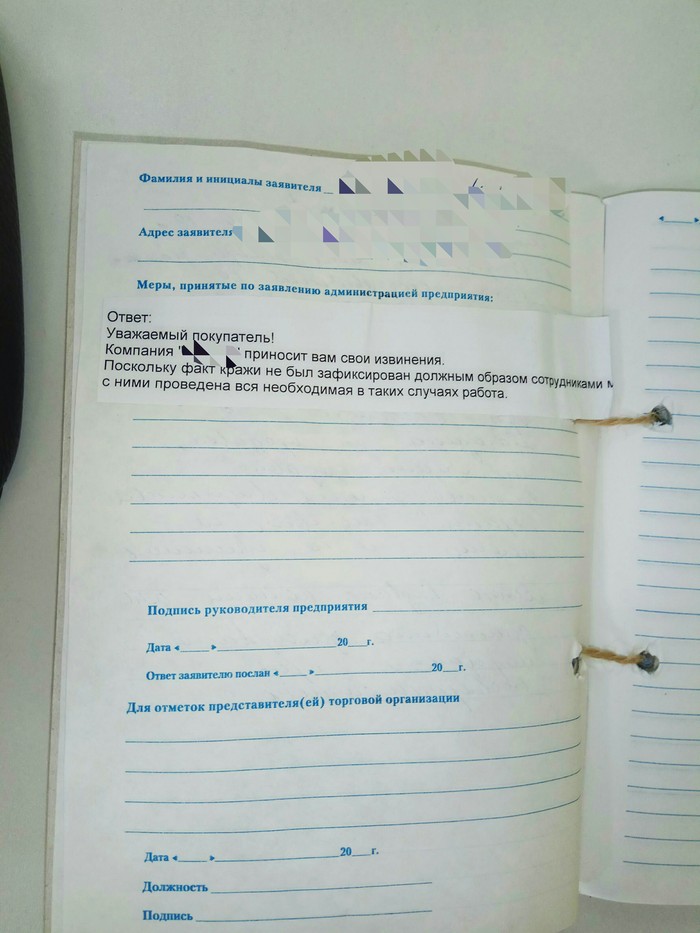 Фамилия и инициалы заявителя
Адрес заявителя
Меры, принятые по заявлению администрацией предприятия:
Ответ:
Уважаемый покупатель!
Компания " " приносит вам свои извинения.
Поскольку факт кражи не был зафиксирован должным образом сотрудниками
с ними проведена вся необходимая в таких случаях работа.
Подпись руководителя предприятия
Дата « » 20 г.
Ответ заявителю послан « » 20 г.
Для отметок представителя(ей) торговой организации
Дата « » 20 г.
Должность
Подпись